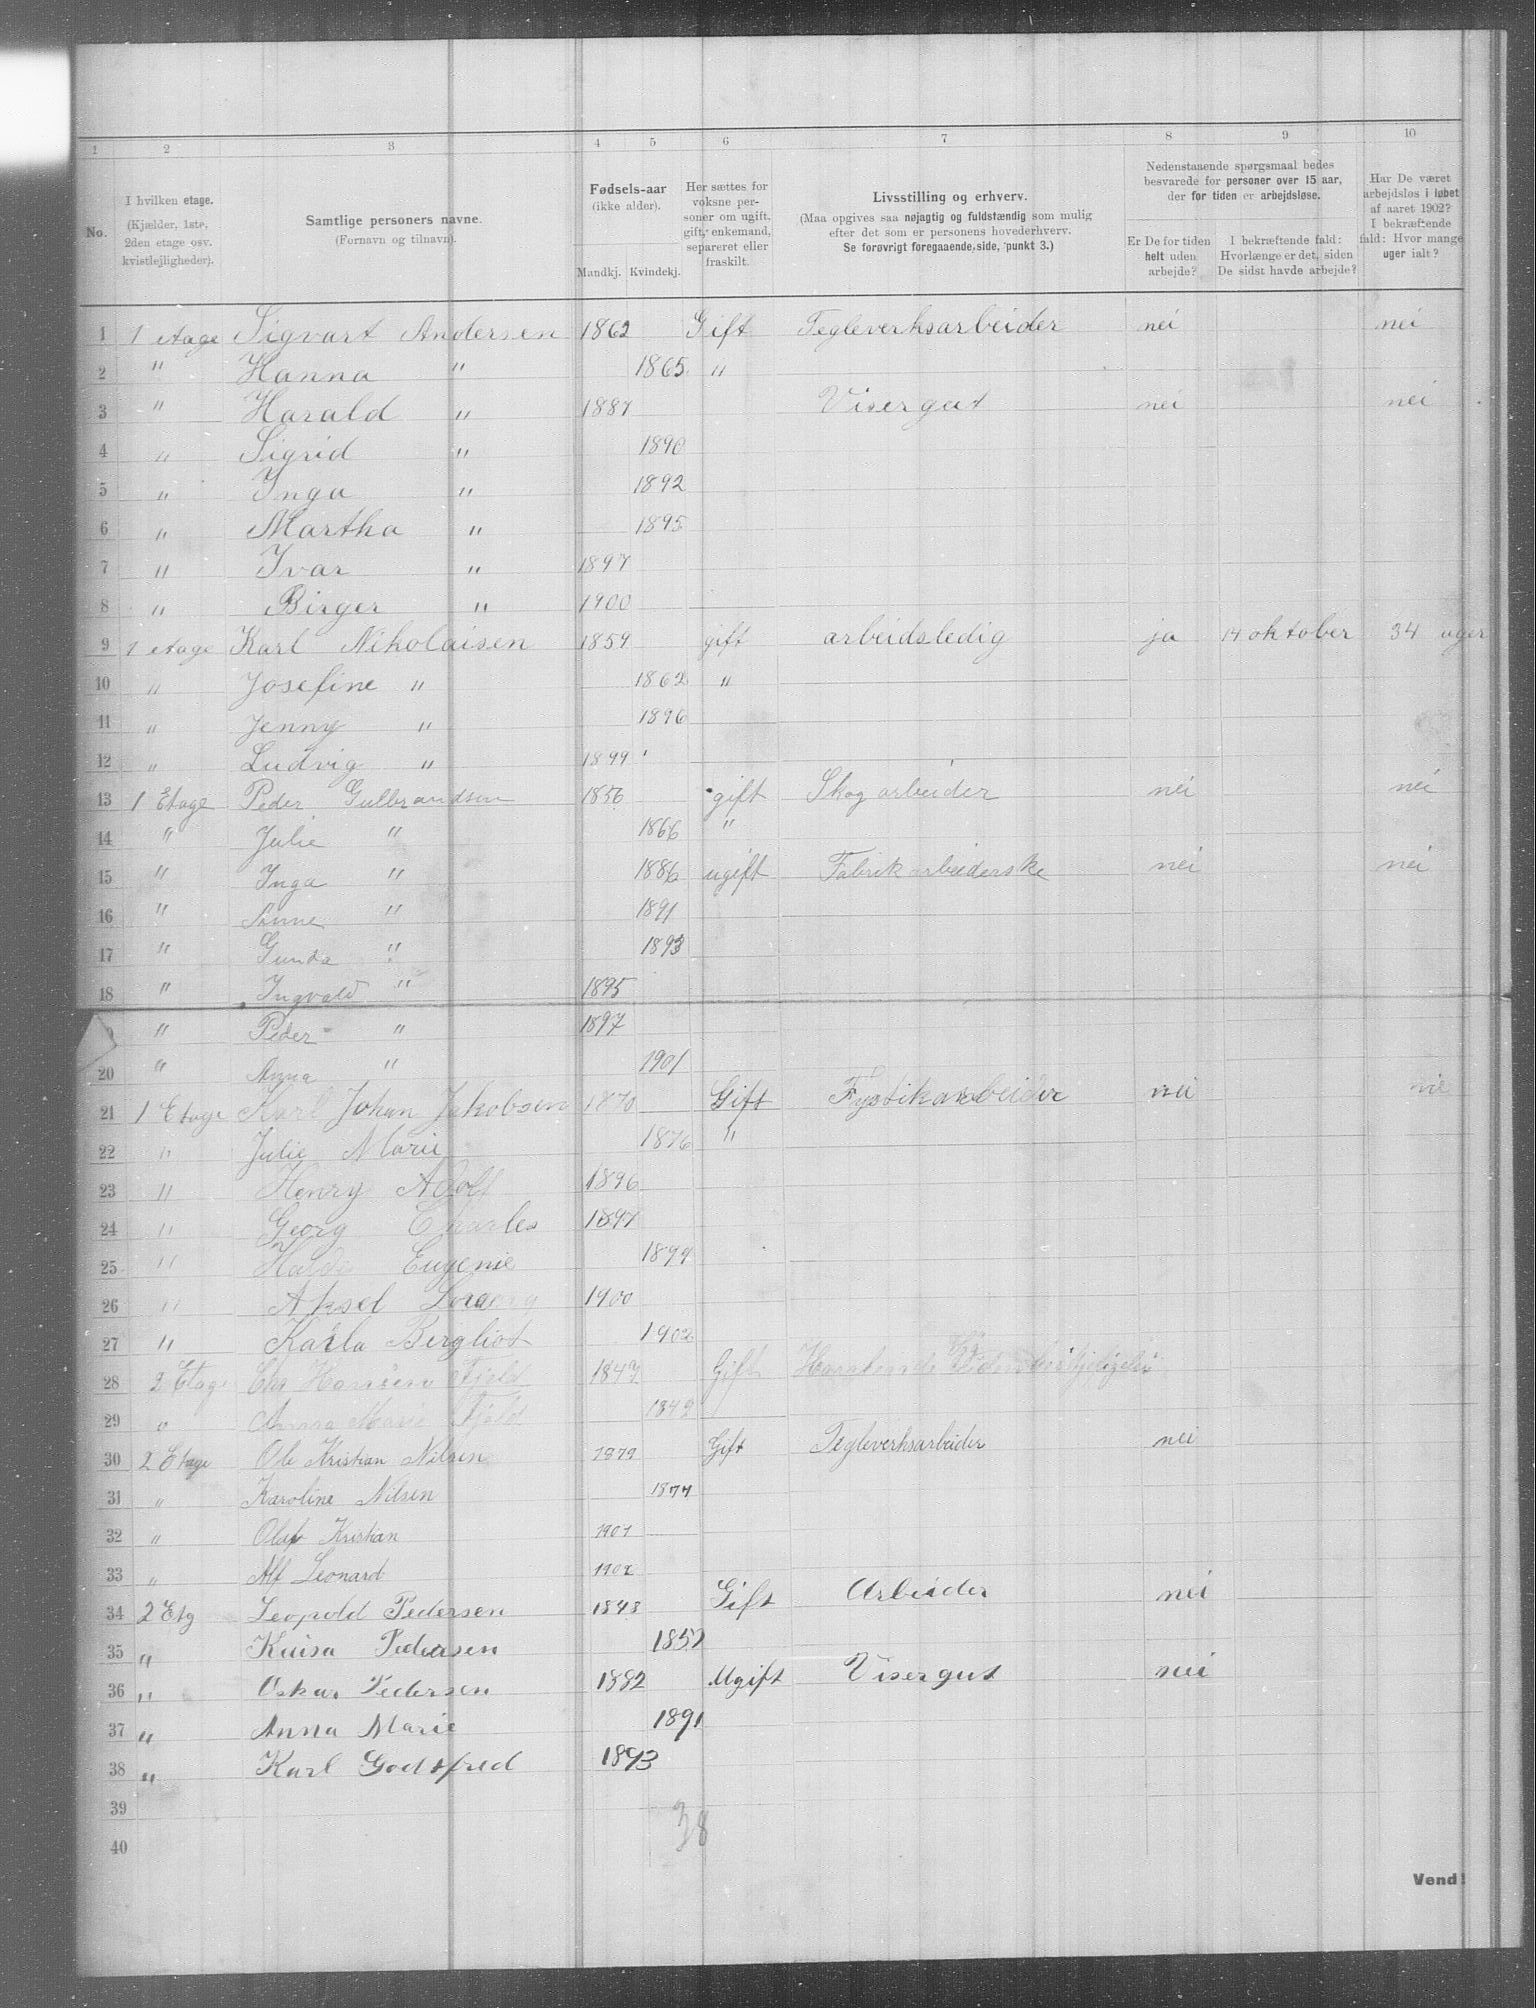 1 2 3 4 5 6 7 8 9 10
No.
I hvilken etage.
(Kjælder, 1ste,
2den etage osv.
kvistlejligheder).
Samtlige personers navne.
(Fornavn og tilnavn).
Fødsels-aar
(ikke alder).
Mandkj. Kvindekj.
Her sættes for
voksne per-
soner om ugift,
gift, enkemand,
separeret eller
fraskilt.
Livsstilling og erhverv.
(Maa opgives saa nøjagtig og fuldstændig som mulig
efter det som er personens hovederhverv.
Se forøvrigt foregaaende side, punkt 3.)
Nedenstaaende spørgsmaal bedes
besvarede for personer over 15 aar,
der for tiden er arbejdsløse.
Er De for tiden
helt uden
arbejde?
I bekræftende fald:
Hvorlænge er det, siden
De sidst havde arbejde?
Har De været
arbejdsløs i løbet
af aaret 1902?
I bekræftende
fald: Hvor mange
uger ialt?
1 1 etage Sigvart Andersen 1862 Gift Tegleverksarbeider nei nei
2 " Hanna " 1865 "
3 " Harald " 1887 Visergut nei nei
4 " Sigrid " 1890
5 " Inga " 1892
6 " Martha " 1895
7 " Ivar " 1897
8 " Birger " 1900
9 1 etage Karl Nikolaisen 1859 gift arbeidsledig ja 14 oktober 34 uger
10 " Josefine " 1862 "
11 " Jenny " 1896
12 " Ludvig " 1899
13 1 Etage Peder Gulbrandsen 1856 gift Skogarbeider nei nei
14 " Julie " 1866 "
15 " Inga " 1886 ugift Fabrikarbeiderske nei nei
16 " " 1891
17 " Gunda " 1893
18 " Ingvald " 1895
" Peder " 1897
20 " Anna " 1901
21 1 Etage Karl Johan Jakobsen 1870 Gift Fystikarbeider nei nie
22 " Julie Marie 1876 "
23 " Henry Adolf 1896
24 " Georg Charles 1897
25 " Eugenie 1899
26 " Aksel 1900
27 " Karla Bergliot 1902
28 2 Etage Chr Hansen Fjeld 1847 Gift
29 " Anna Marie Fjeld 1849
30 2 Etage Ole Kristian Nilsen 1879 Gift Tegleverksarbeider nei
31 " Karoline Nilsen 1877
32 " Olaf Kristian 1901
33 " Alf Leonard 1902
34 2 Etg Leopold Pedersen 1848 Gift Arbeider nei
35 " Pedersen 1857
36 " Oskar Pedersen 1882 Ugift Visergut nei
37 " Anna Marie 1891
38 " Karl Godtfred 1893
39
40
38
Vend!